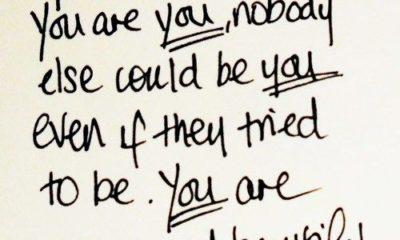 You are you, nobody
else could be you
even if they tried
to be. You are